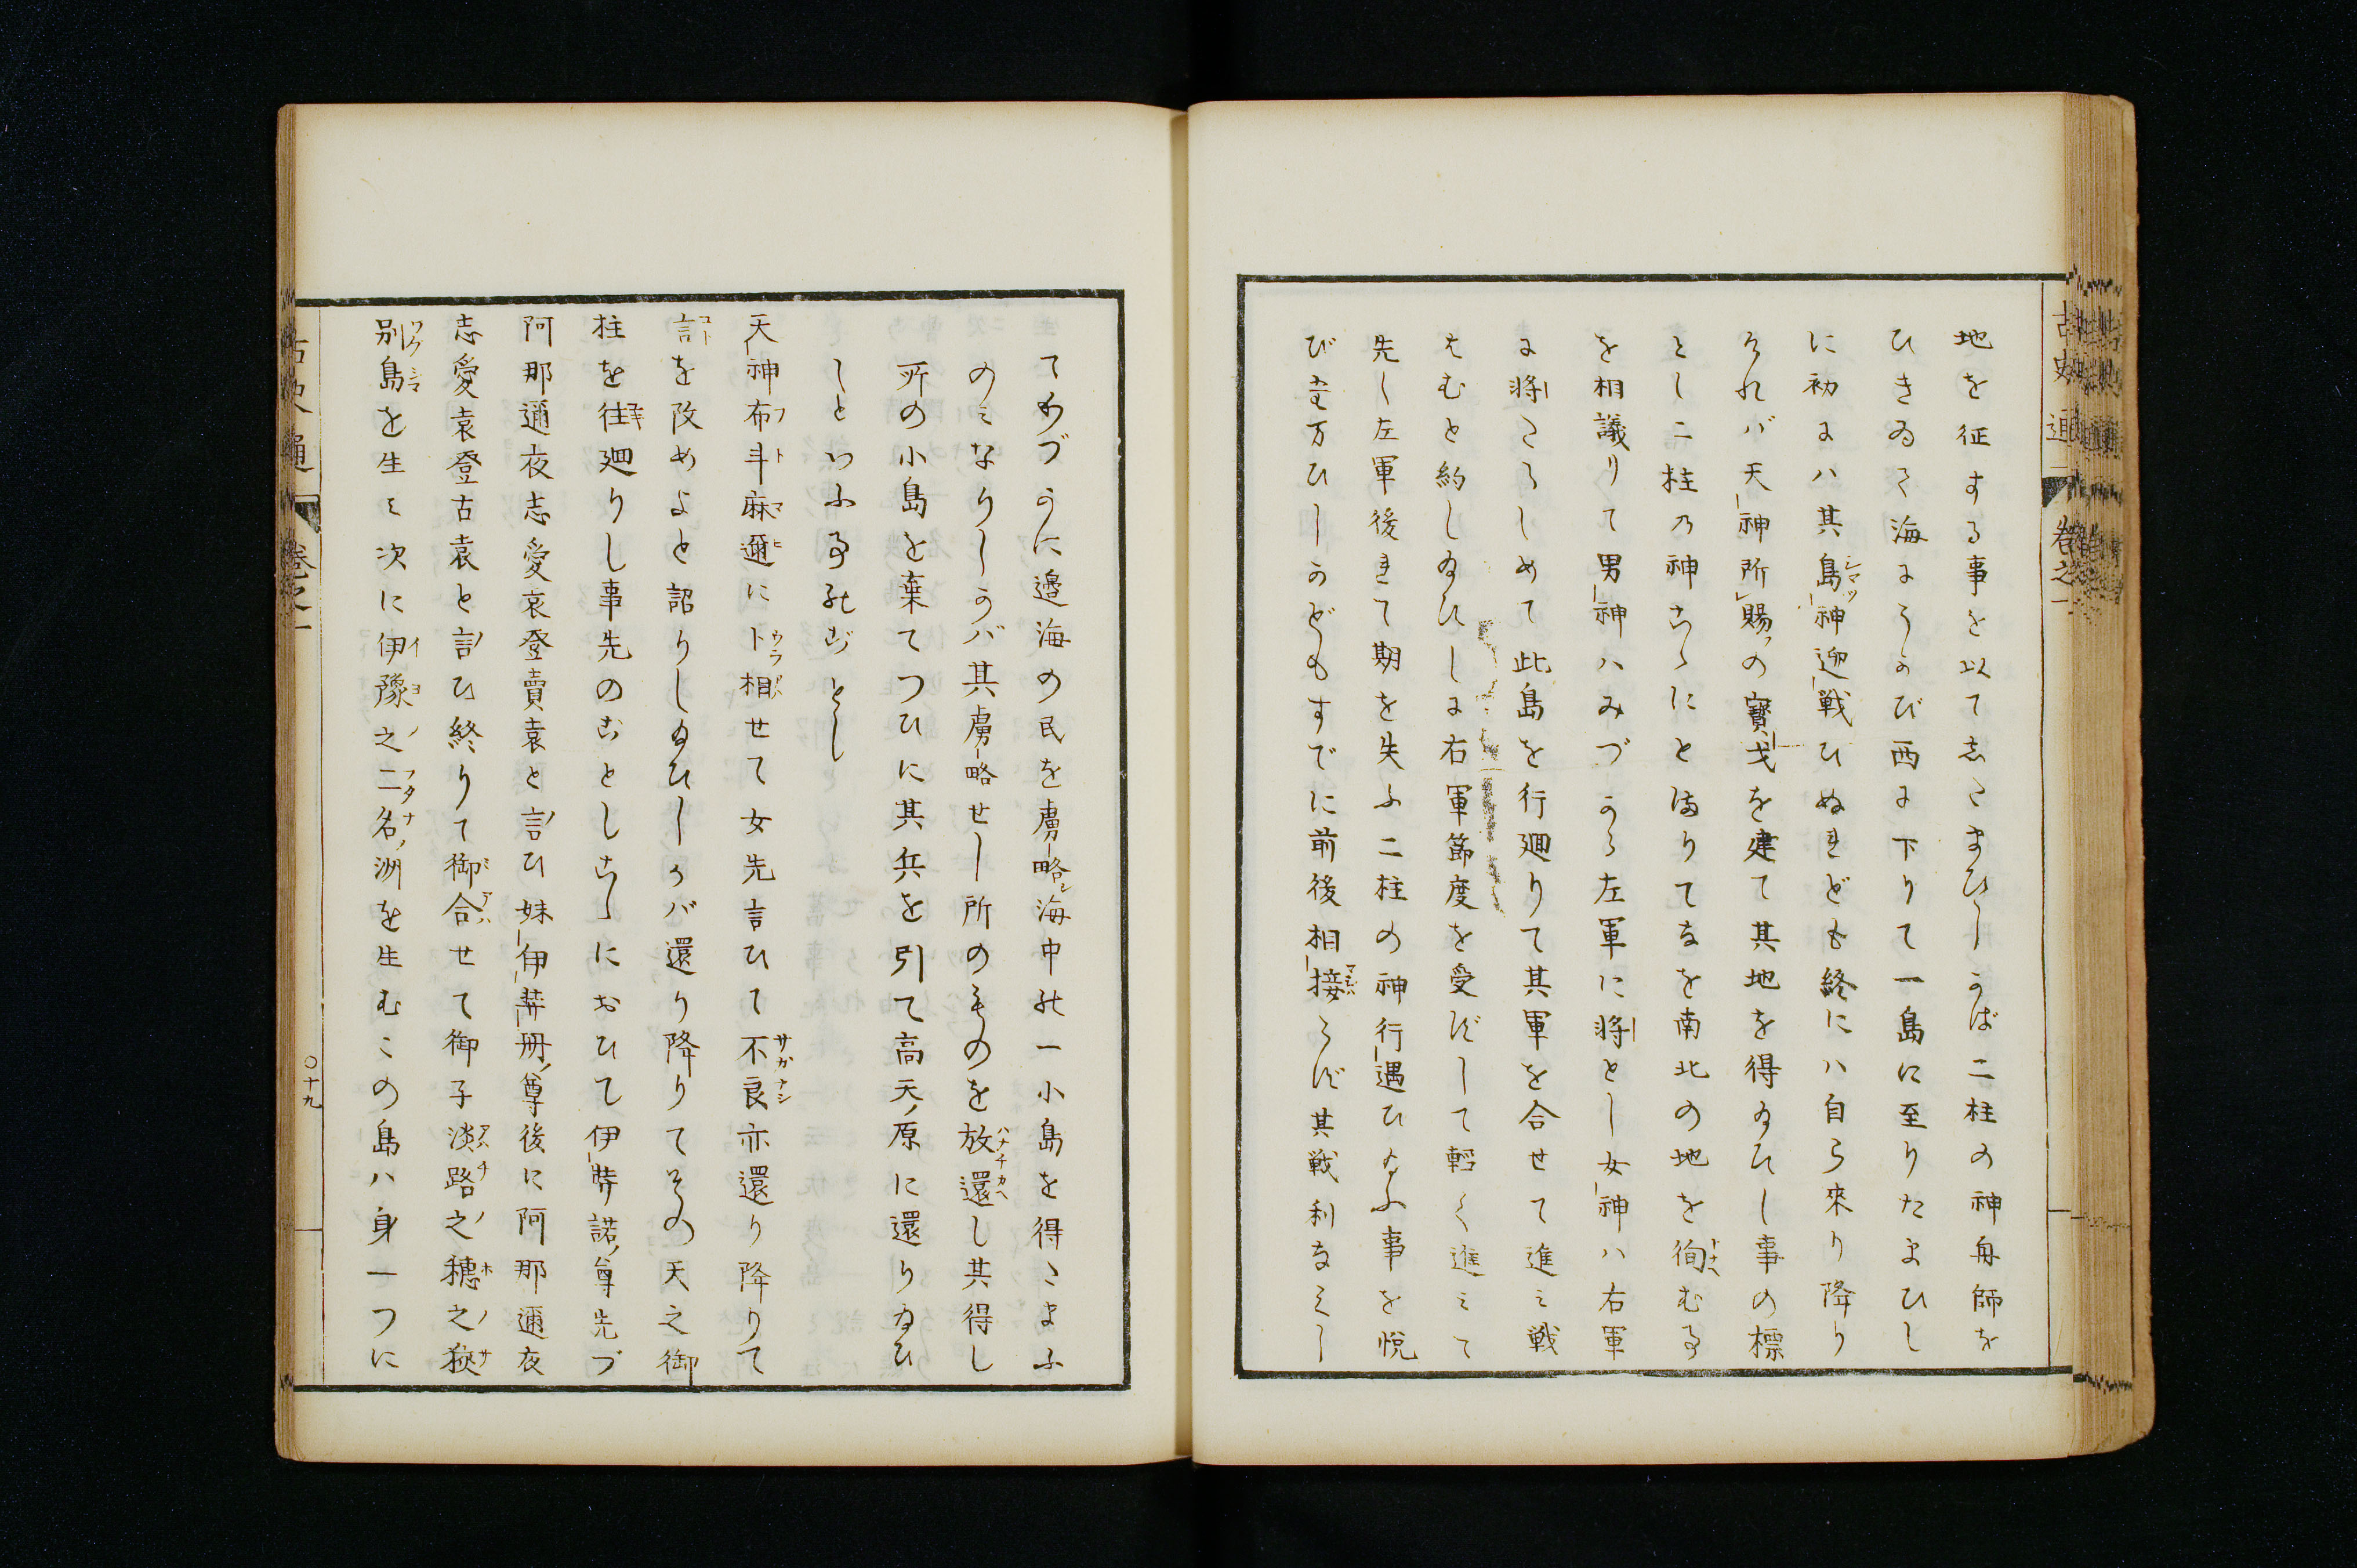 古史通 巻之一
地を征する事を以てしたまひしうば二柱の神舟師を
ひきゐて海にうかび西に下りて一島に至りたまひし
に初には其島神迎戦ひぬれども終には自ら来り降り
されバ天神所賜の寶戈を建て其地を得給ひし事の標
とし二柱乃神こゝにとゞまりてなを南北の地を徇むる事
を相議りて男神ハみづから左軍に将とし女神ハ右軍
に将たらしめて此島を行廻りて其軍を合せて進ミ戦
はむと約し給ひしに右軍節度を受ずして軽く進ミて
先し左軍後れて期を失ふ二柱の神行遇ひ給ふ事を悦
び玄万ひしかどもすでに前後相接らず其戦利なくし
てわづかに邊海の民を虜略シ海中の一小島を得たまふ
のミなりしかバ其虜略せし所のものを放還し其得し
所の小島を棄てつひに其兵を引て高天ノ原に還り給ひ
しといふ事のごとし
天神布斗麻邇に卜相せて女先言ひて不良亦還り降りて
言を改めよと詔りし給ひしかバ還り降りてその天之御
柱を往廻りし事先のごとしこゝにおひて伊弉諾ノ尊先づ
阿那邇夜志愛哀登賣袁と言ひ妹伊弉冊ノ尊後に阿那邇夜
志愛袁登古袁と言ひ終りて御合せて御子淡路之穂之狭
別島を生ミ次に伊豫之二名ノ洲を生むこの島ハ身一つに
古史通 巻之一
〇十九